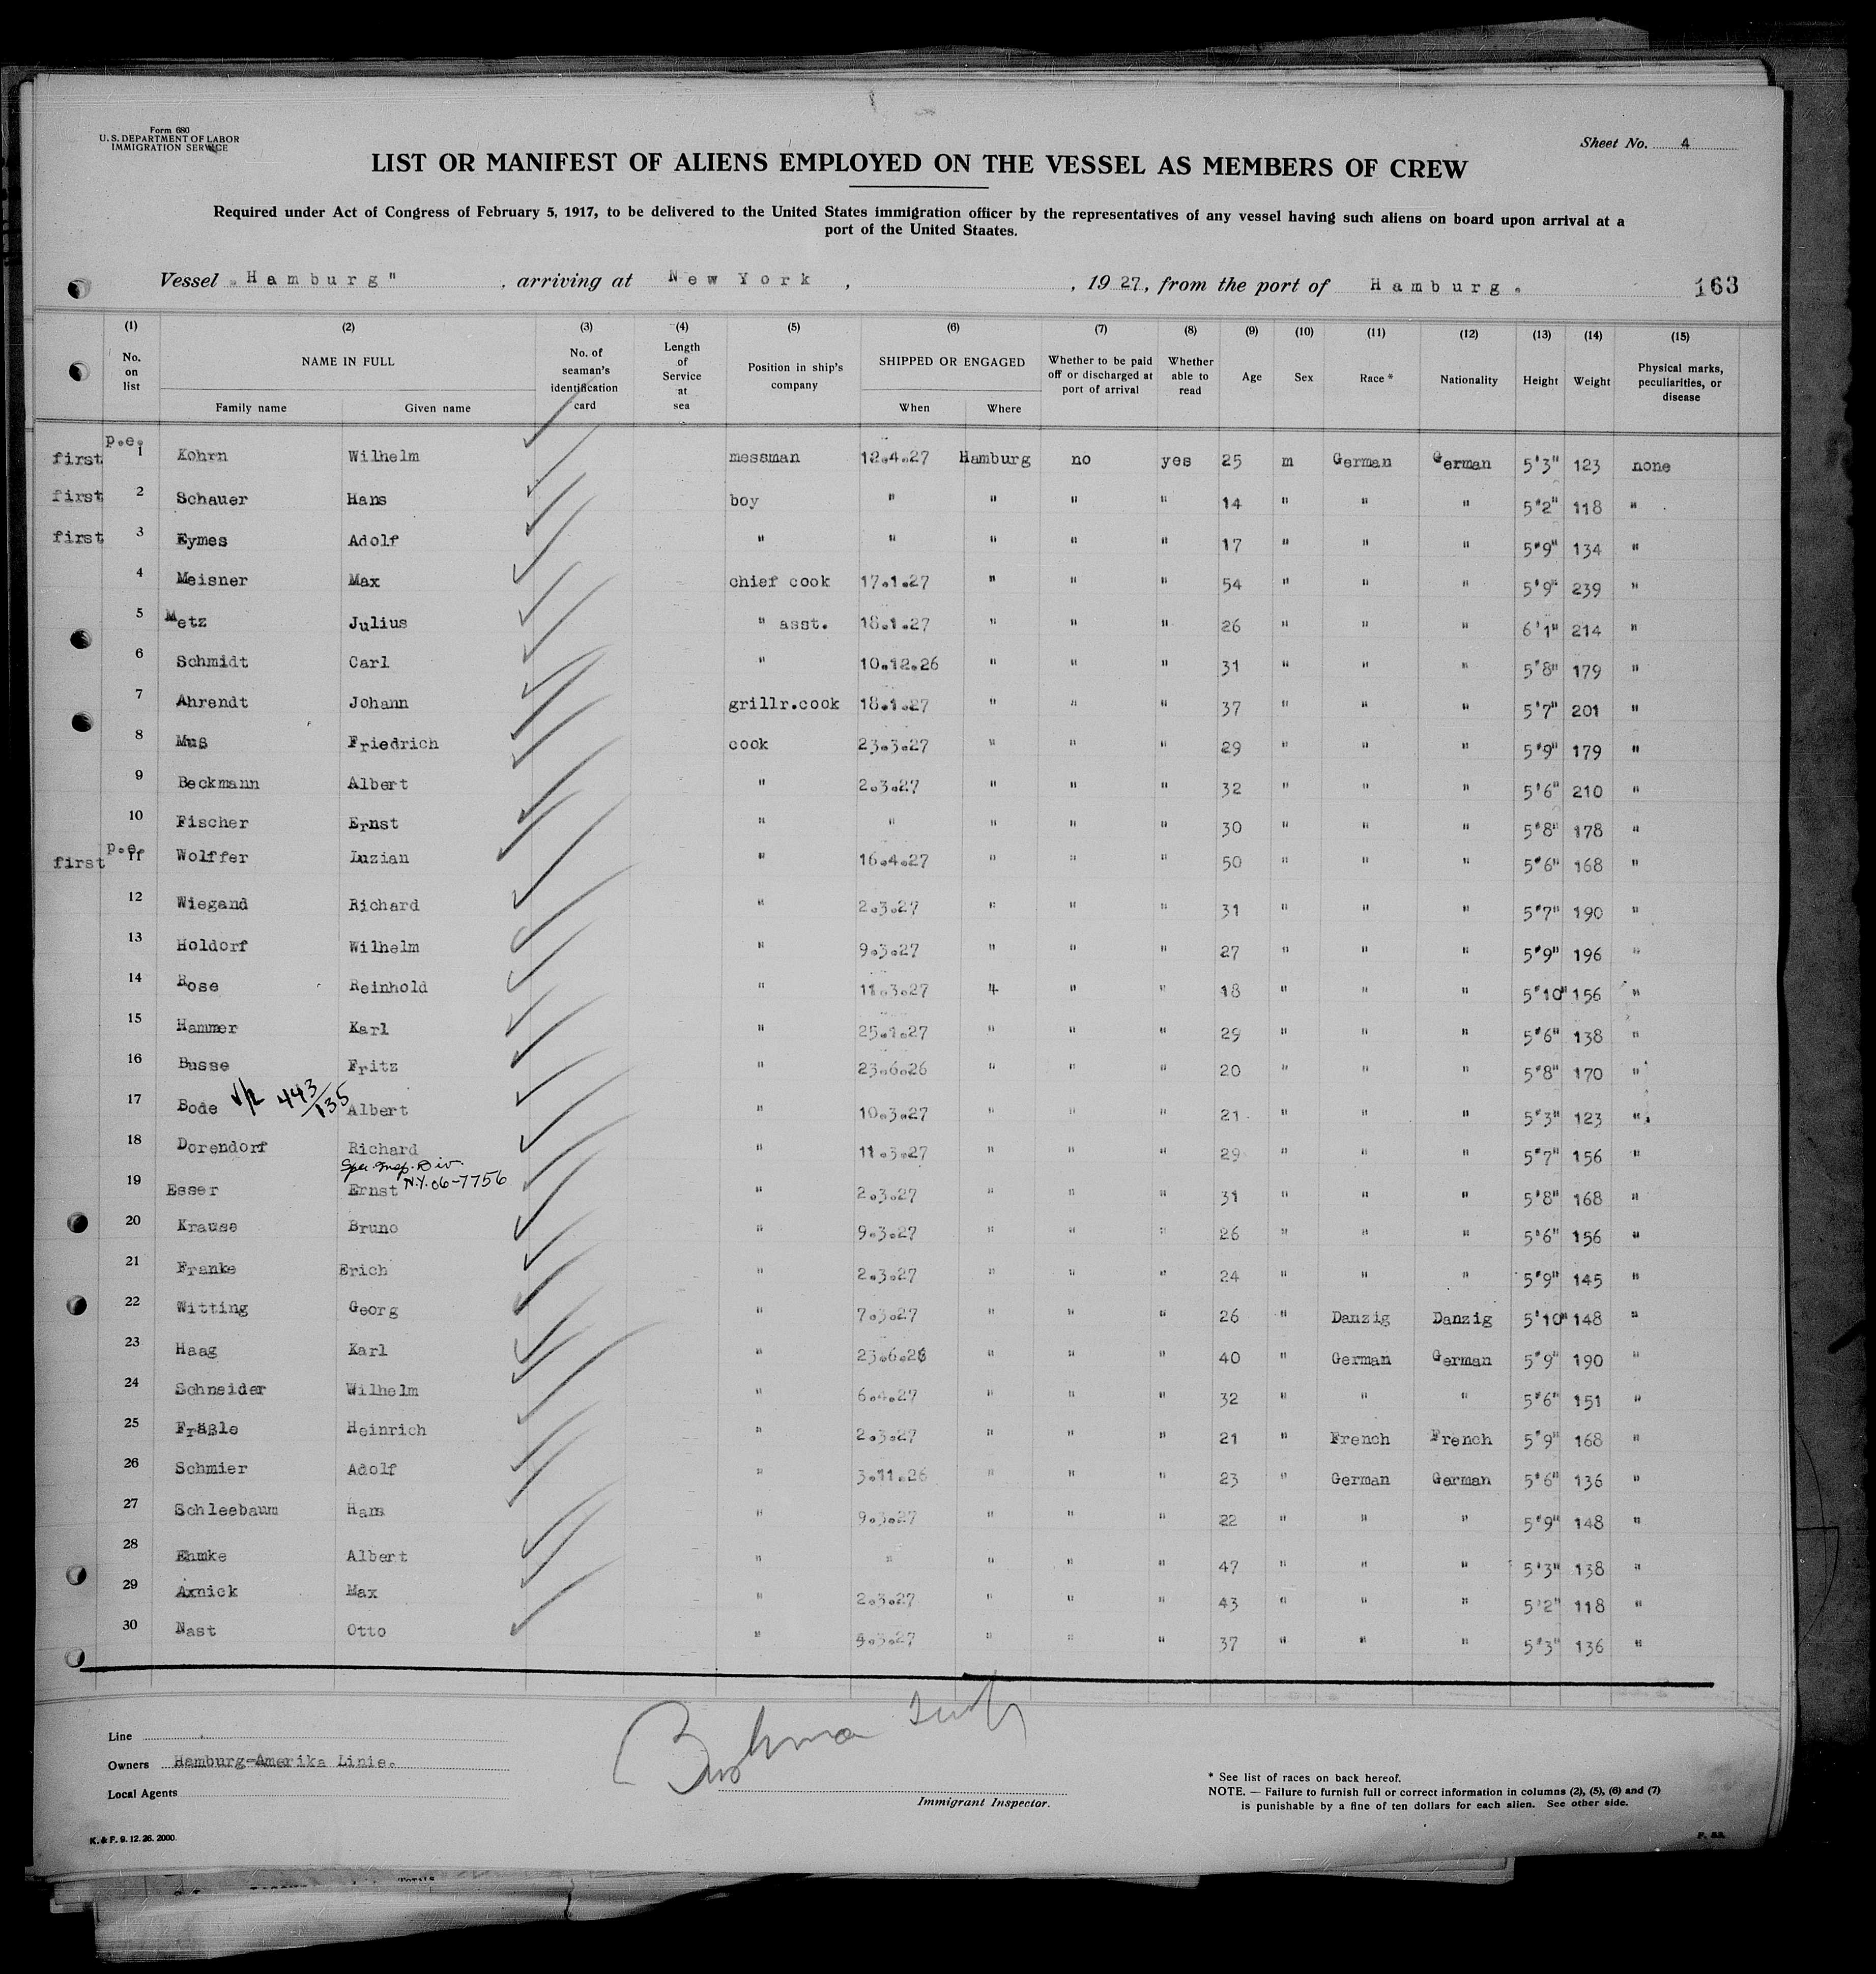 Form 680
U. S. DEPARTMENT OF LABOR
IMMIGRATION SERVICE
Sheet No. 4
LIST OR MANIFEST OF ALIENS EMPLOYED ON THE VESSEL AS MEMBERS OF CREW
Required under Act of Congress of February 5, 1917, to be delivered to the United States immigration officer by the representatives of any vessel having such aliens on board upon arrival at a
port of the United Staates.
Vessel „Hamburg" , arriving at New York , , 1927, from the port of Hamburg. 163
(1) (2) (3) (4) (5) (6) (7) (8) (9) (10) (11) (12) (13) (14) (15)
No. on list NAME IN FULL Family name Given name No. of seaman's identification card Length of Service at sea Position in ship's company SHIPPED OR ENGAGED When Where Whether to be paid off or discharged at port of arrival Whether able to read Age Sex Race * Nationality Height Weight Physical marks, peculiarities, or disease
p.e.
first 1 Kohrn Wilhelm messman 12.4.27 Hamburg no yes 25 m German German 5'3" 123 none
first 2 Schauer Hans boy " " " " 14 " " " 5'2" 118 "
first 3 Eymes Adolf " " " " " 17 " " " 5'9" 134 "
4 Meisner Max chief cook 17.1.27 " " " 54 " " " 5'9" 239 "
5 Metz Julius " asst. 18.1.27 " " " 26 " " " 6'1" 214 "
6 Schmidt Carl " 10.12.26 " " " 31 " " " 5'8" 179 "
7 Ahrendt Johann grillr.cook 18.1.27 " " " 37 " " " 5'7" 201 "
8 Muß Friedrich cook 23.3.27 " " " 29 " " " 5'9" 179 "
9 Beckmann Albert " 2.3.27 " " " 32 " " " 5'6" 210 "
10 Fischer Ernst " " " " " 30 " " " 5'8" 178 "
p.e.
first 11 Wolffer Luzian " 16.4.27 " " " 50 " " " 5'6" 168 "
12 Wiegand Richard " 2.3.27 " " " 31 " " " 5'7" 190 "
13 Holdorf Wilhelm " 9.3.27 " " " 27 " " " 5'9" 196 "
14 Bose Reinhold " 11.3.27 4 " " 18 " " " 5'10" 156 "
15 Hammer Karl " 25.1.27 " " " 29 " " " 5'6" 138 "
16 Busse Fritz " 23.6.26 " " " 20 " " " 5'8" 170 "
17 Bode 443/135 Albert " 10.3.27 " " " 21 " " " 5'3" 123 "
18 Dorendorf Richard " 11.3.27 " " " 29 " " " 5'7" 156 "
Spec. Insp. Div.
N.Y. 06-7756
19 Esser Ernst " 2.3.27 " " " 31 " " " 5'8" 168 "
20 Krause Bruno " 9.3.27 " " " 26 " " " 5'6" 156 "
21 Franke Erich " 2.3.27 " " " 24 " " " 5'9" 145 "
22 Witting Georg " 7.3.27 " " " 26 " Danzig Danzig 5'10" 148 "
23 Haag Karl " 23.6.26 " " " 40 " German German 5'9" 190 "
24 Schneider Wilhelm " 6.4.27 " " " 32 " " " 5'6" 151 "
25 Fräßle Heinrich " 2.3.27 " " " 21 " French French 5'9" 168 "
26 Schmier Adolf " 3.11.26 " " " 23 " German German 5'6" 136 "
27 Schleebaum Hans " 9.3.27 " " " 22 " " " 5'9" 148 "
28 Ehmke Albert " " " " " 47 " " " 5'3" 138 "
29 Axnick Max " 2.3.27 " " " 43 " " " 5'2" 118 "
30 Nast Otto " 4.3.27 " " " 37 " " " 5'3" 136 "
Line
Owners Hamburg-Amerika Linie.
Local Agents
Immigrant Inspector.
* See list of races on back hereof.
NOTE. — Failure to furnish full or correct information in columns (2), (5), (6) and (7)
is punishable by a fine of ten dollars for each alien. See other side.
K. & F. 9. 12. 26. 2000.
F. 53.